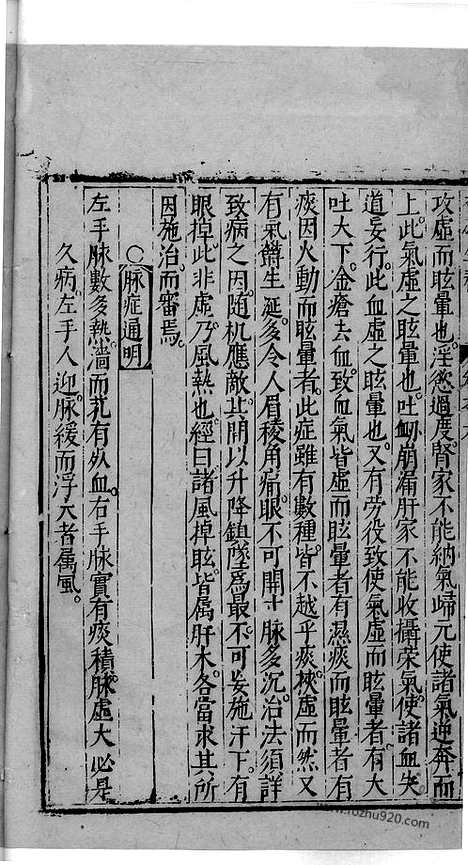 攻虛而眩暈也。淫慾過度。腎家不能納氣歸元。使諸氣逆奔而
上。此氣虛之眩暈也。吐衂崩漏。肝家不能收攝荣氣。使諸血失
道妄行。此血虛之眩暈也。又有劳役致使氣虛而眩暈者。有大
吐大下。金瘡去血。致血氣皆虛而眩暈者。有濕痰而眩暈者。有
痰因火動而眩暈者。此症雖有數種。皆不越乎痰挾虛而然。又
有氣欝生涎。多令人眉稜角痛。眼不可開。寸脉多沉。治法須詳
致病之因。随机應敵。其間以升降鎮墜爲最。不可妄施汗下。有
眼掉此非虛。乃風熱也。經曰諸風掉眩。皆属肝木。各當求其所
因。施治而審焉。
○脉症通明
左手脉數多熱。濇而芤有死血。右手脉實有痰積。脉虛大必是
久病。左手人迎脉緩而浮大者属風。
www.fozhu920.com